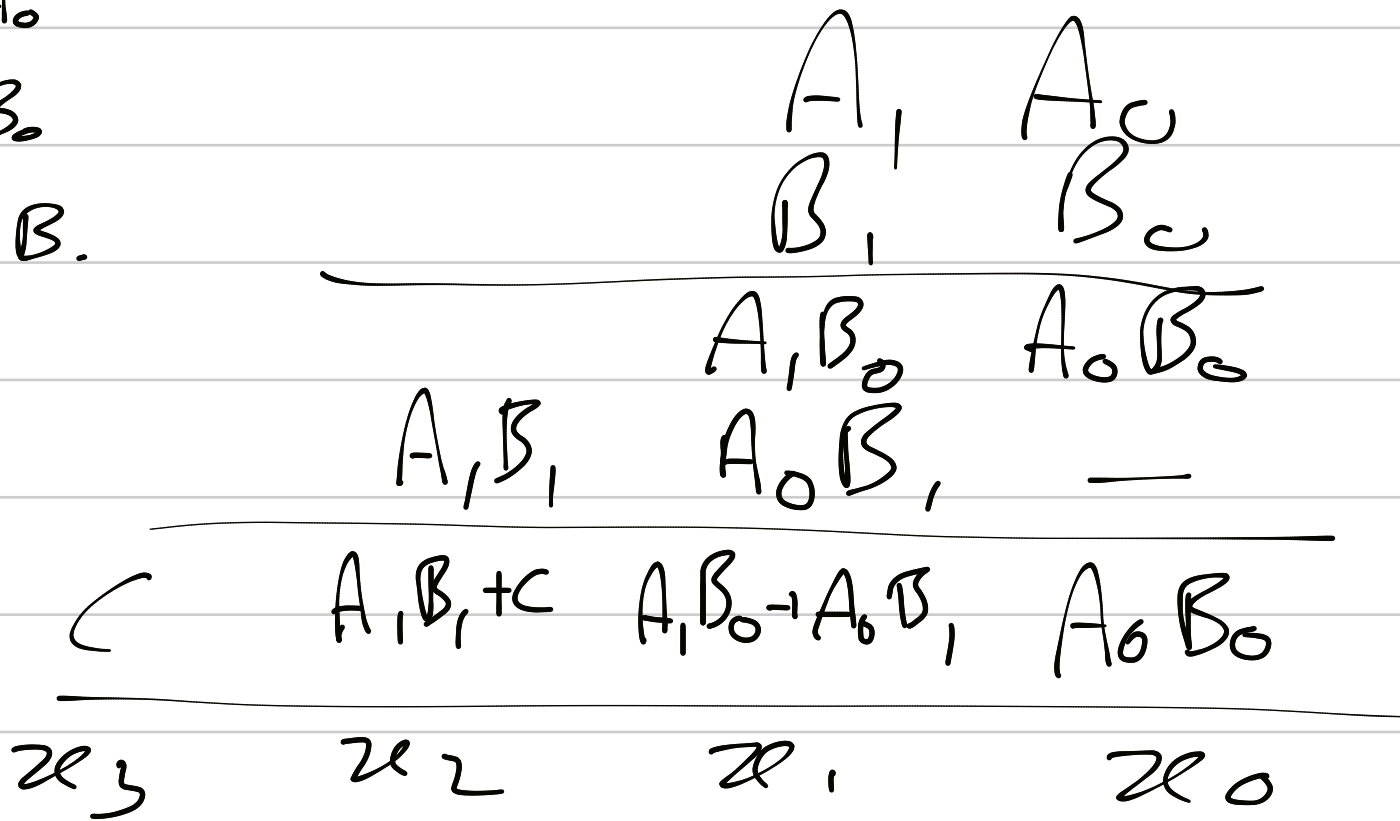 A₁ A₀
B₀
B₁ B₀
B.
A₁B₀ A₀B₀
A₁B₁ A₀B₁ —
C A₁B₁+C A₁B₀+A₀B₁ A₀B₀
x₃ x₂ x₁ x₀